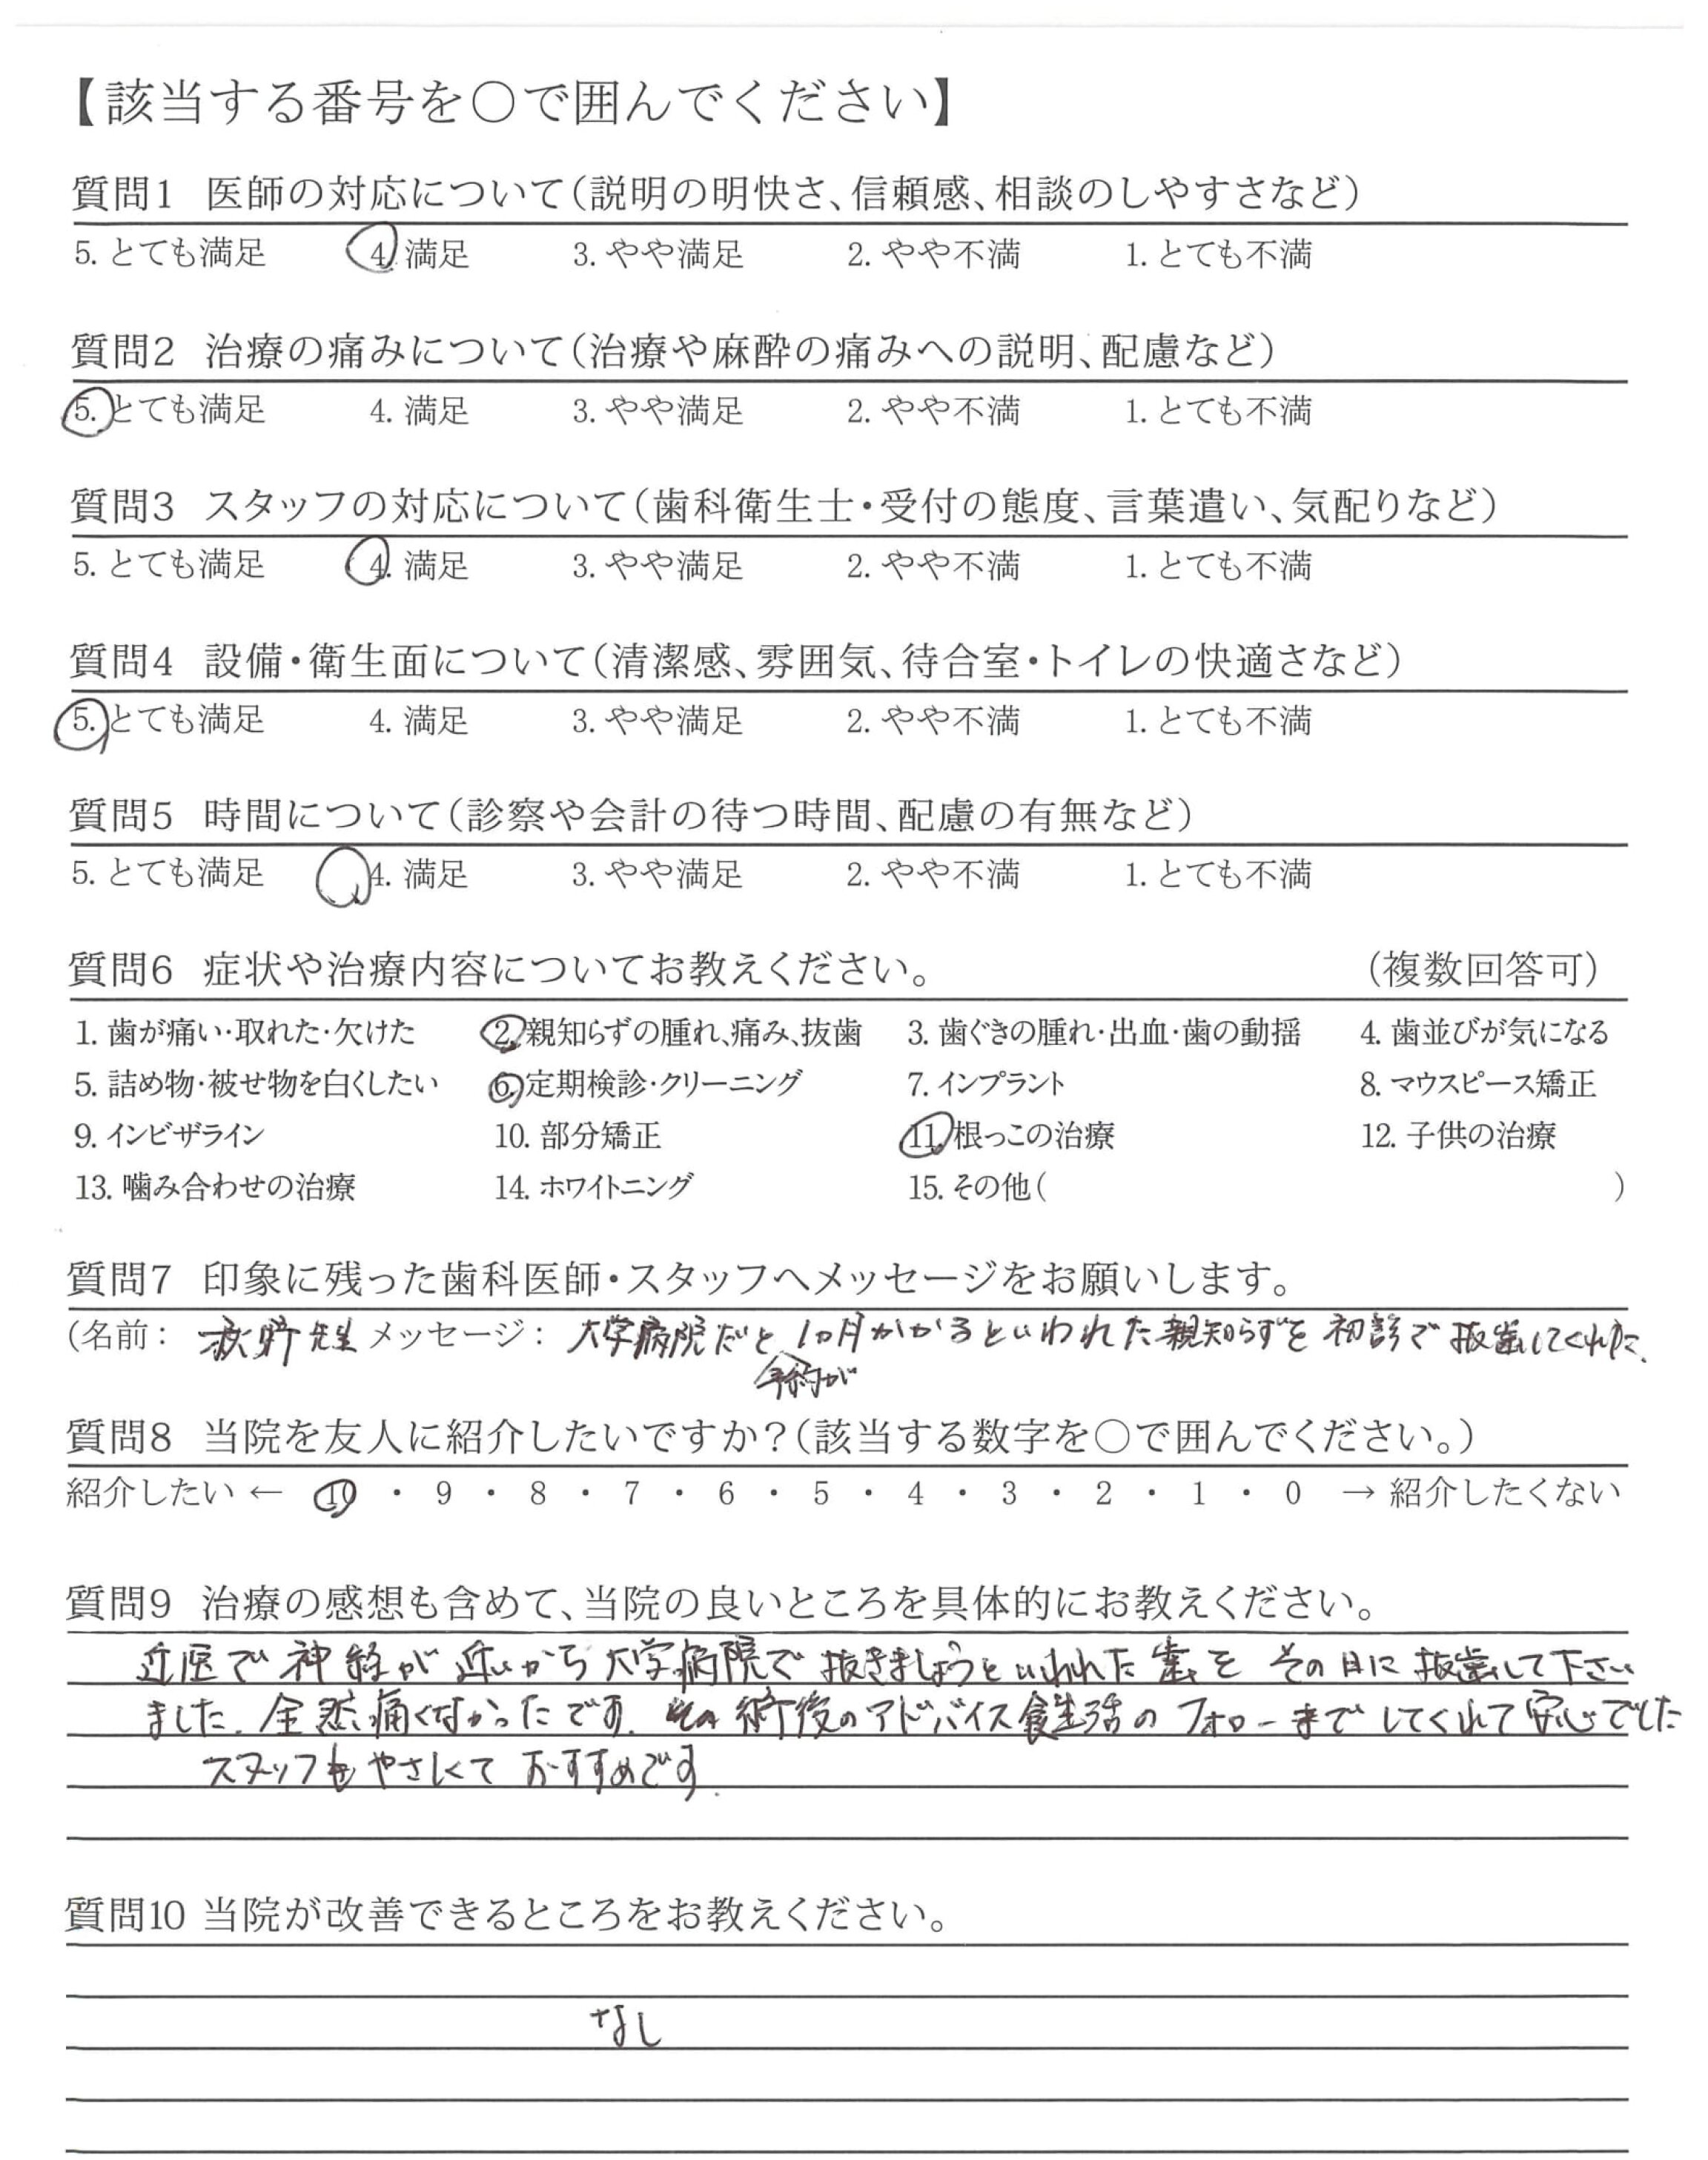 【該当する番号を○で囲んでください】
質問1 医師の対応について(説明の明快さ、信頼感、相談のしやすさなど)
5. とても満足 4. 満足 3. やや満足 2. やや不満 1. とても不満
質問2 治療の痛みについて(治療や麻酔の痛みへの説明、配慮など)
5. とても満足 4. 満足 3. やや満足 2. やや不満 1. とても不満
質問3 スタッフの対応について(歯科衛生士・受付の態度、言葉遣い、気配りなど)
5. とても満足 4. 満足 3. やや満足 2. やや不満 1. とても不満
質問4 設備・衛生面について(清潔感、雰囲気、待合室・トイレの快適さなど)
5. とても満足 4. 満足 3. やや満足 2. やや不満 1. とても不満
質問5 時間について(診察や会計の待つ時間、配慮の有無など)
5. とても満足 4. 満足 3. やや満足 2. やや不満 1. とても不満
質問6 症状や治療内容についてお教えください。 (複数回答可)
1. 歯が痛い・取れた・欠けた 2. 親知らずの腫れ、痛み、抜歯 3. 歯ぐきの腫れ・出血・歯の動揺 4. 歯並びが気になる
5. 詰め物・被せ物を白くしたい 6. 定期検診・クリーニング 7. インプラント 8. マウスピース矯正
9. インビザライン 10. 部分矯正 11. 根っこの治療 12. 子供の治療
13. 噛み合わせの治療 14. ホワイトニング 15. その他( )
質問7 印象に残った歯科医師・スタッフへメッセージをお願いします。
(名前: 先生 メッセージ: 大学病院だと 1ヵ月かかるといわれた親知らずを 初診で 抜歯してくれた.
予約が
質問8 当院を友人に紹介したいですか?(該当する数字を○で囲んでください。)
紹介したい ← 10 ・ 9 ・ 8 ・ 7 ・ 6 ・ 5 ・ 4 ・ 3 ・ 2 ・ 1 ・ 0 → 紹介したくない
質問9 治療の感想も含めて、当院の良いところを具体的にお教えください。
近医で 神経が 近いから 大学病院で 抜きましょうといわれた 歯を その日に 抜歯して下さい
ました. 全然痛くなかったです. 術後のアドバイス食生活の フォローまで してくれて 安心でした
スタッフも やさしくて おすすめです.
質問10 当院が改善できるところをお教えください。
なし